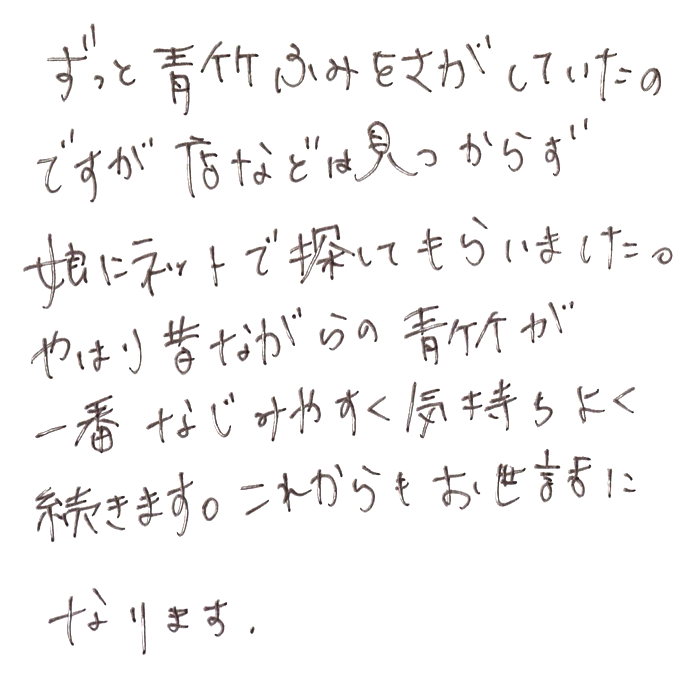 ずっと青竹ふみをさがしていたの
ですが店などは見つからず
娘にネットで探してもらいました。
やはり昔ながらの青竹が
一番なじみやすく気持ちよく
続きます。これからもお世話に
なります.